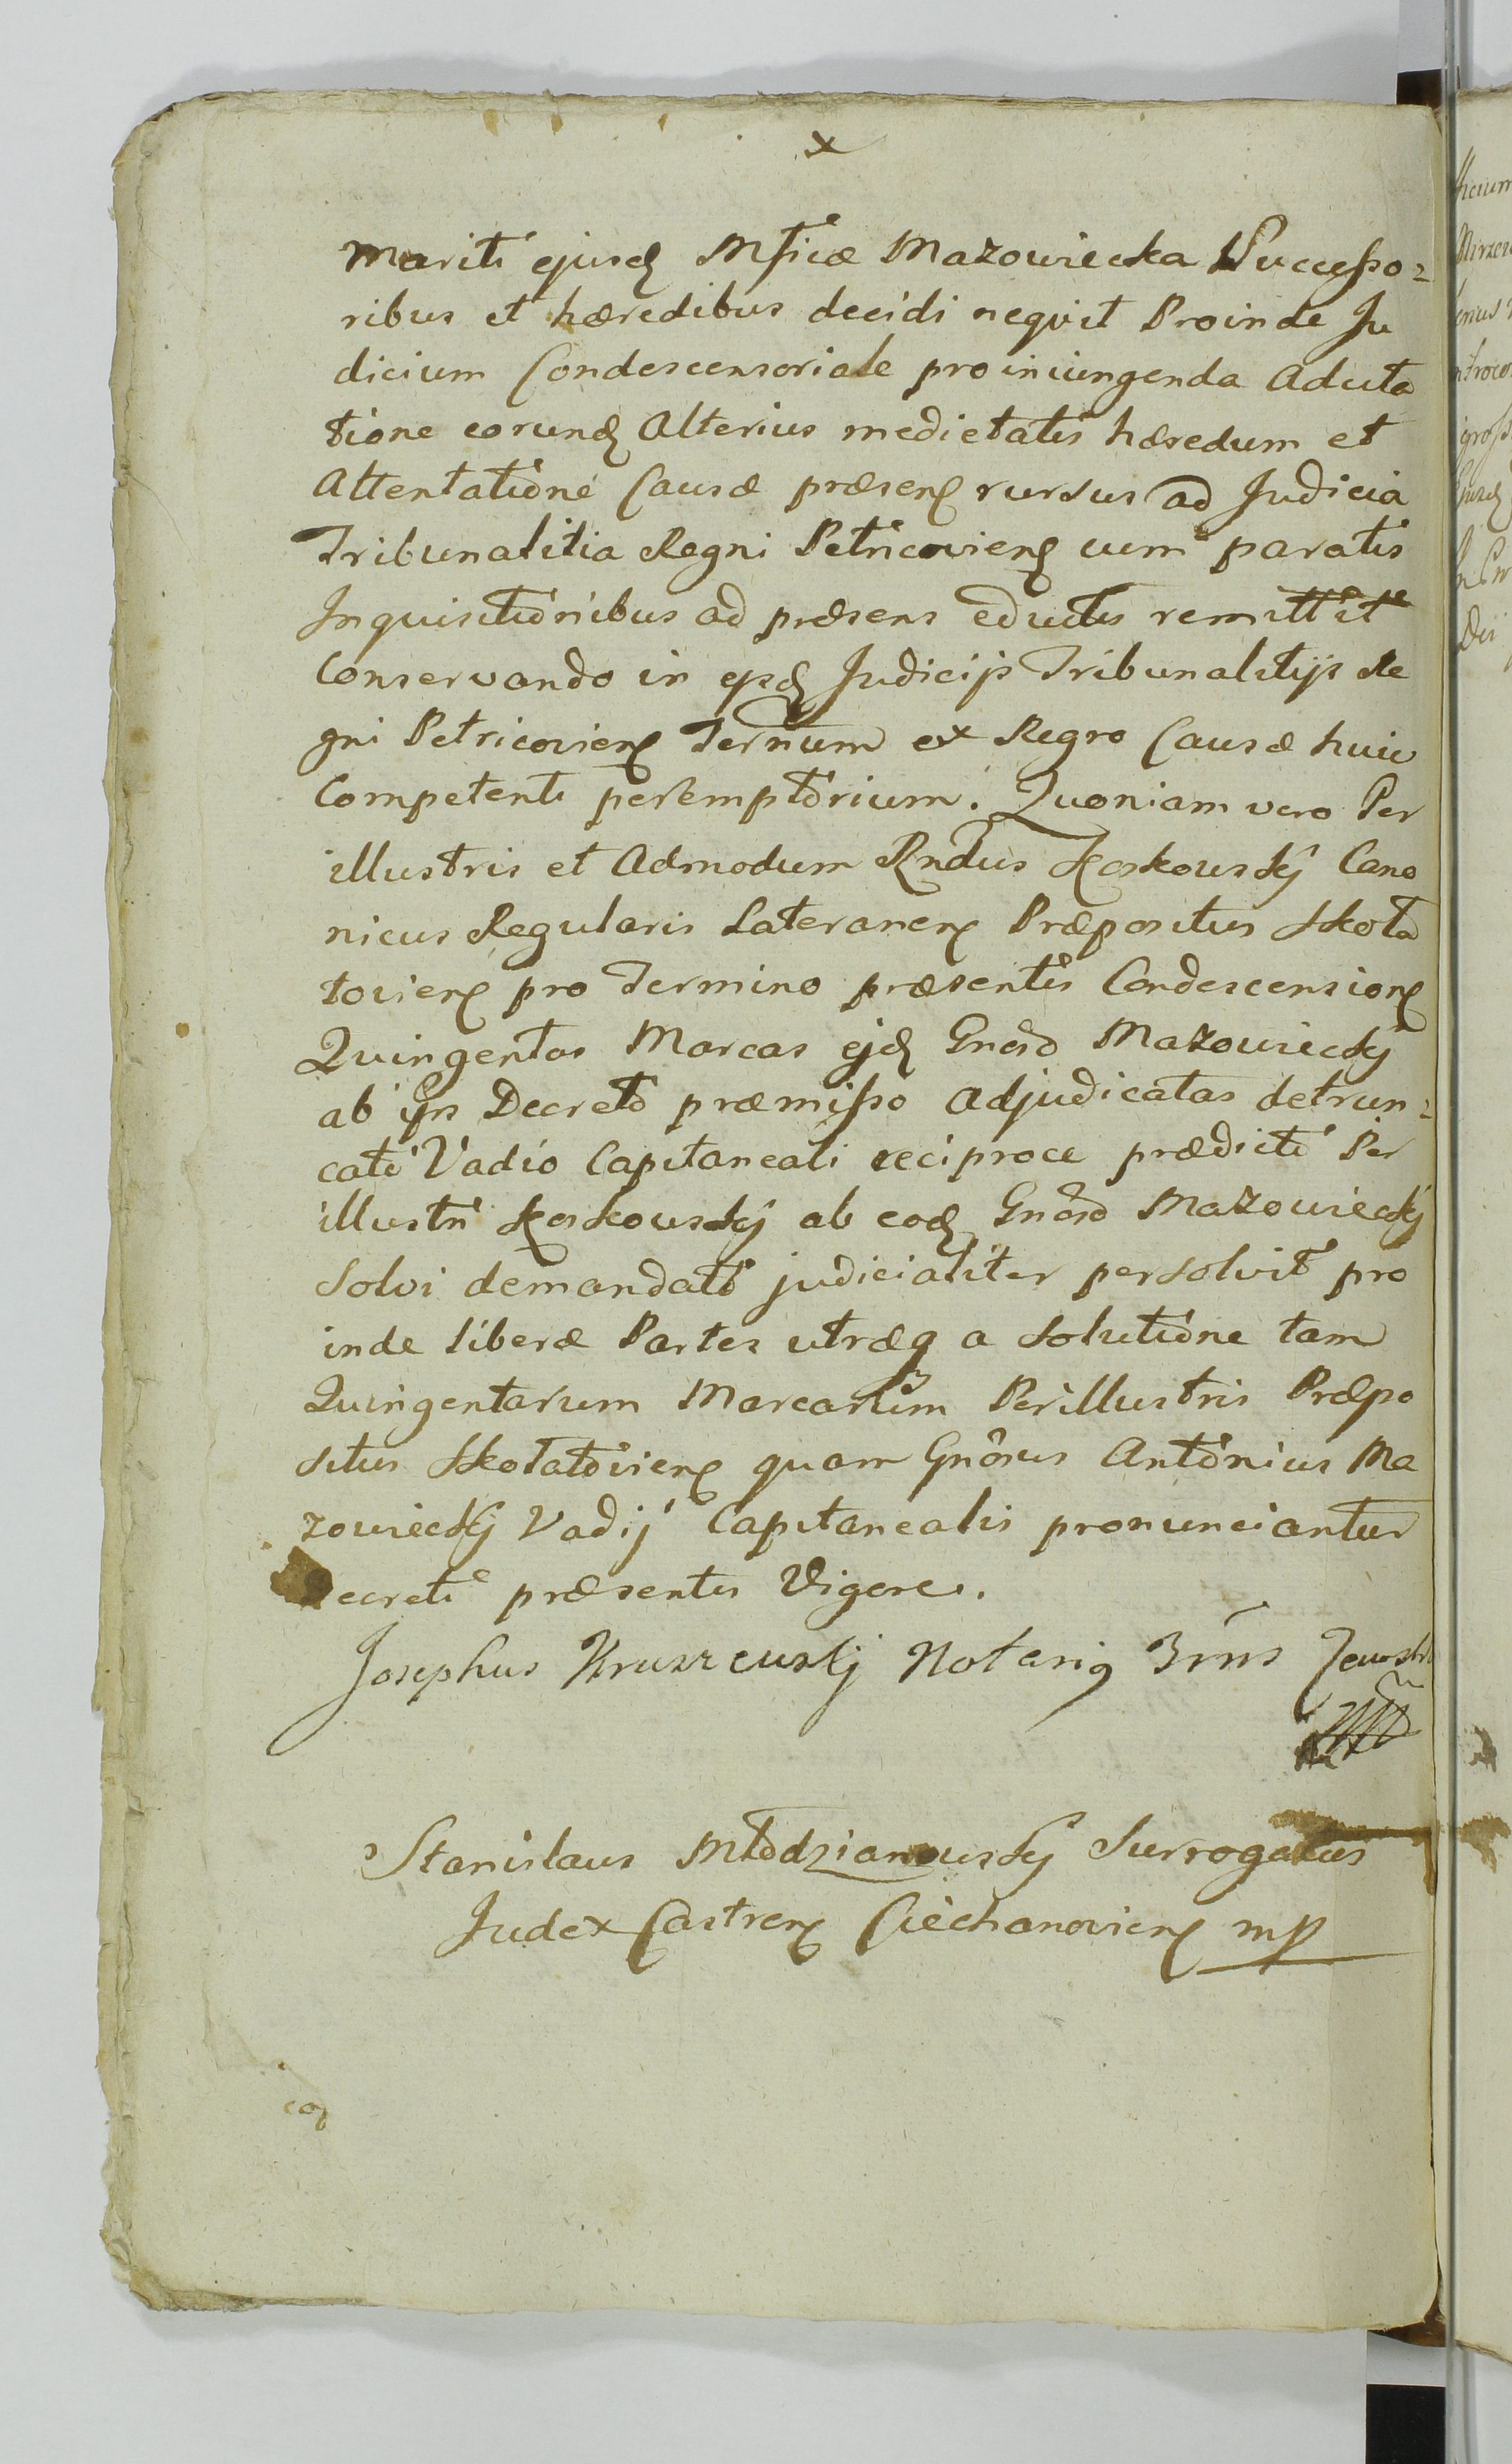 x
mariti ejusd Mficæ Mazowiecka Successo=
ribus et hæredibus decidi nequit Proinde Ju
dicium Condescensoriale pro iniungenda Aduta
tione eorund Alterius medietatis hæredum et
Attentatione Causæ præsens rursus ad Judicia
Tribunalitia Regni Petricoviens cum paratis
Inquisitionibus ad præsens eductis remittit
Conservando in ejsd Judicijs Tribunalitijs Re
gni Petricoviens Terñum ex Regro Causæ huic
Competenti peremptorium. Quoniam vero Per
illustris et Admodum Rndus Koskowskÿ Cano
nicus Regularis Lateranens Præpositus Skota
toviens pro Termino præsentis Condescensions
Quingentas Marcas ejd Gnoso Mazowieckÿ
ab ijs Decreto præmisso adjudicatas detrun=
cato Vadio Capitaneali reciproce prædicto Per
illustri Koskowskÿ ab eod Gnoso Mazowieckÿ
solvi demandato judicialiter persolvit pro
inde liberæ Partes utræq a solutione tam
Quingentarum Marcarum Perillustris Præpo
situs Skotatoviens quam Gnosus Antonius Ma
zowieckÿ Vadij Capitanealis pronunciantur
Decreti præsentis Vigore.
Josephus Kruszewskj Notarig
Stanislaus Młodzianowskÿ Surrogatus
Judex Castrens Ciechanoviens mp